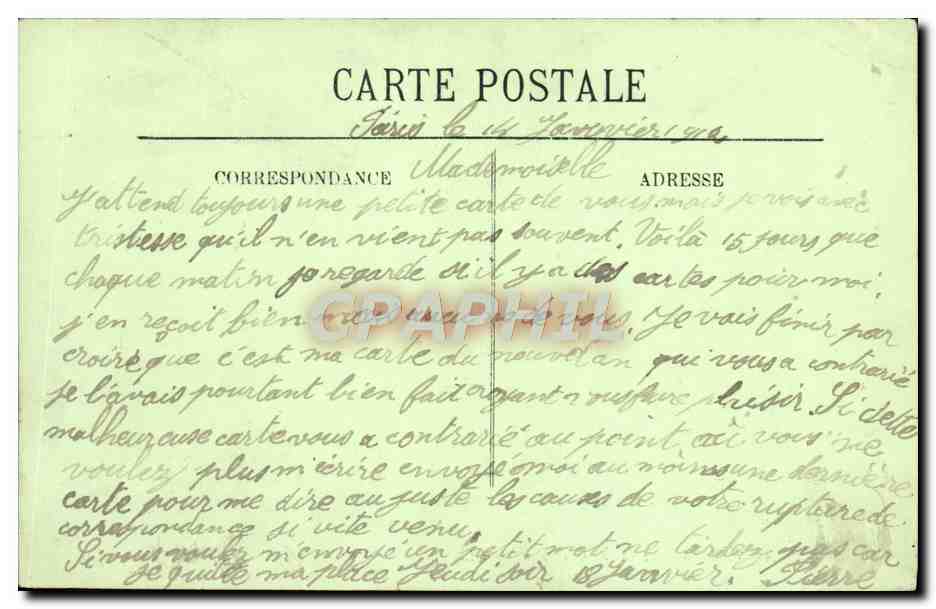 CARTE POSTALE
Paris le 14 Janvier
CORRESPONDANCE Mademoiselle ADRESSE
J'attend toujours une petite carte de vous mais je vois avec
tristesse qu'il n'en vient pas souvent. Voilà 15 jours que
chaque matin je regarde si il y a des cartes pour moi,
j'en reçoit bien mais aucunes de vous. Je vais finir par
croire que c'est ma carte du nouvel an qui vous a contrarié
je l'avais pourtant bien fait croyant vous faire plaisir. Si cette
malheureuse carte vous a contrarié au point où vous ne
voulez plus m'écrire envoyé moi au moins une dernière
carte pour me dire au juste les causes de votre rupture de
correspondance si vite venu.
Si vous voulez m'envoyé un petit mot ne tardez pas car
je quitte ma place Jeudi soir 18 Janvier. Pierre
CPAPHIL